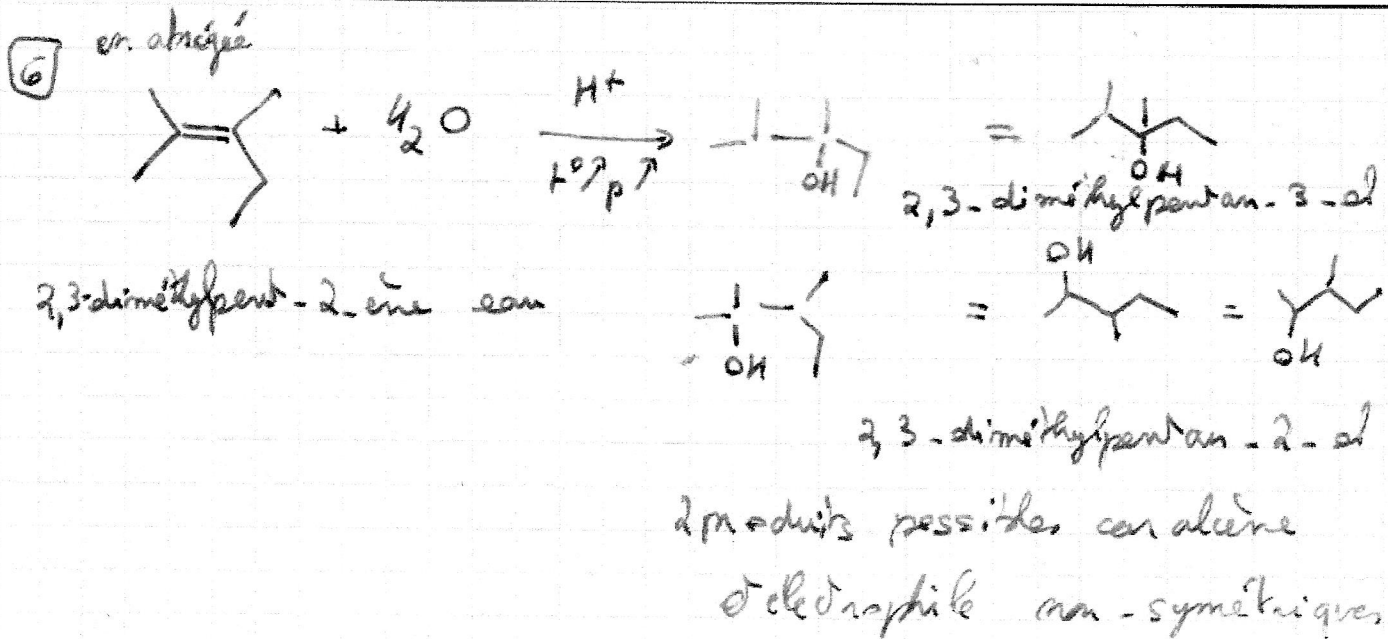 6 en abrégée
+ H2O H+ t°↗ p↗ OH = OH
2,3-diméthylpentan-3-ol
2,3-diméthylpent-2-ène eau OH = OH = OH
2,3-diméthylpentan-2-ol
2 produits possibles car alcène
et électrophile non-symétriques